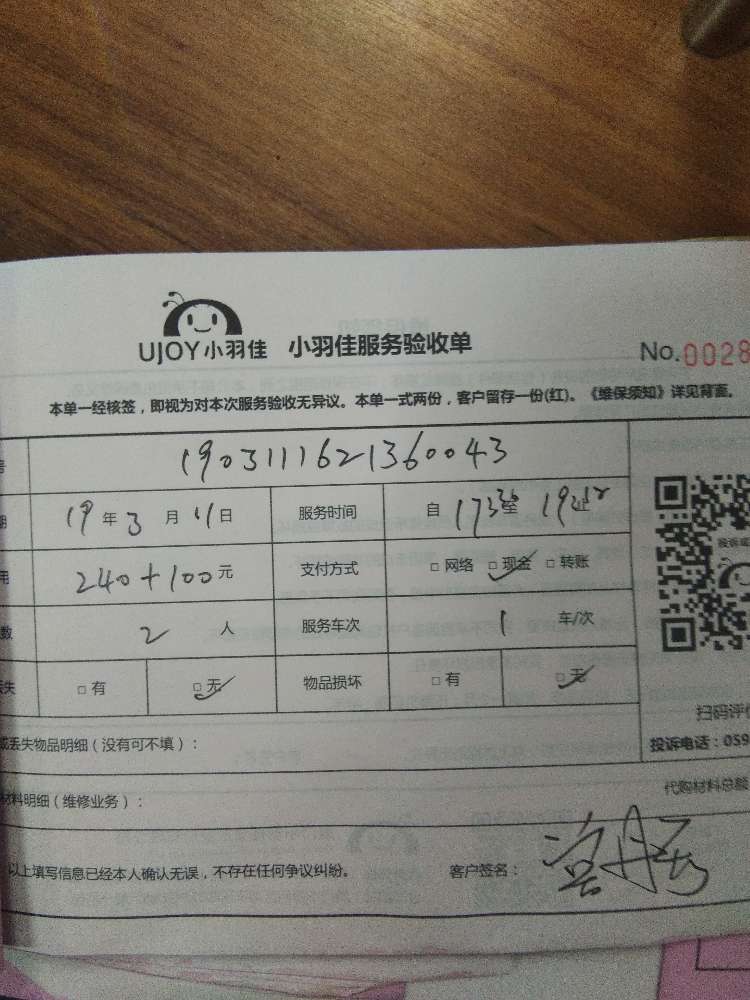 UJOY小羽佳 小羽佳服务验收单 No.0028
本单一经核签，即视为对本次服务验收无异议。本单一式两份，客户留存一份(红)。《维保须知》详见背面。
号 1903111621360043
期 19年3月11日 服务时间 自1730至19 止
用 240+100元 支付方式 □网络 □现金 □转账
数 2人 服务车次 1 车/次
丢失 □有 □无 物品损坏 □有 □无
扫码评价
或丢失物品明细（没有可不填）： 投诉电话：059
材料明细（维修业务）： 代购材料总额
以上填写信息已经本人确认无误，不存在任何争议纠纷。 客户签名：